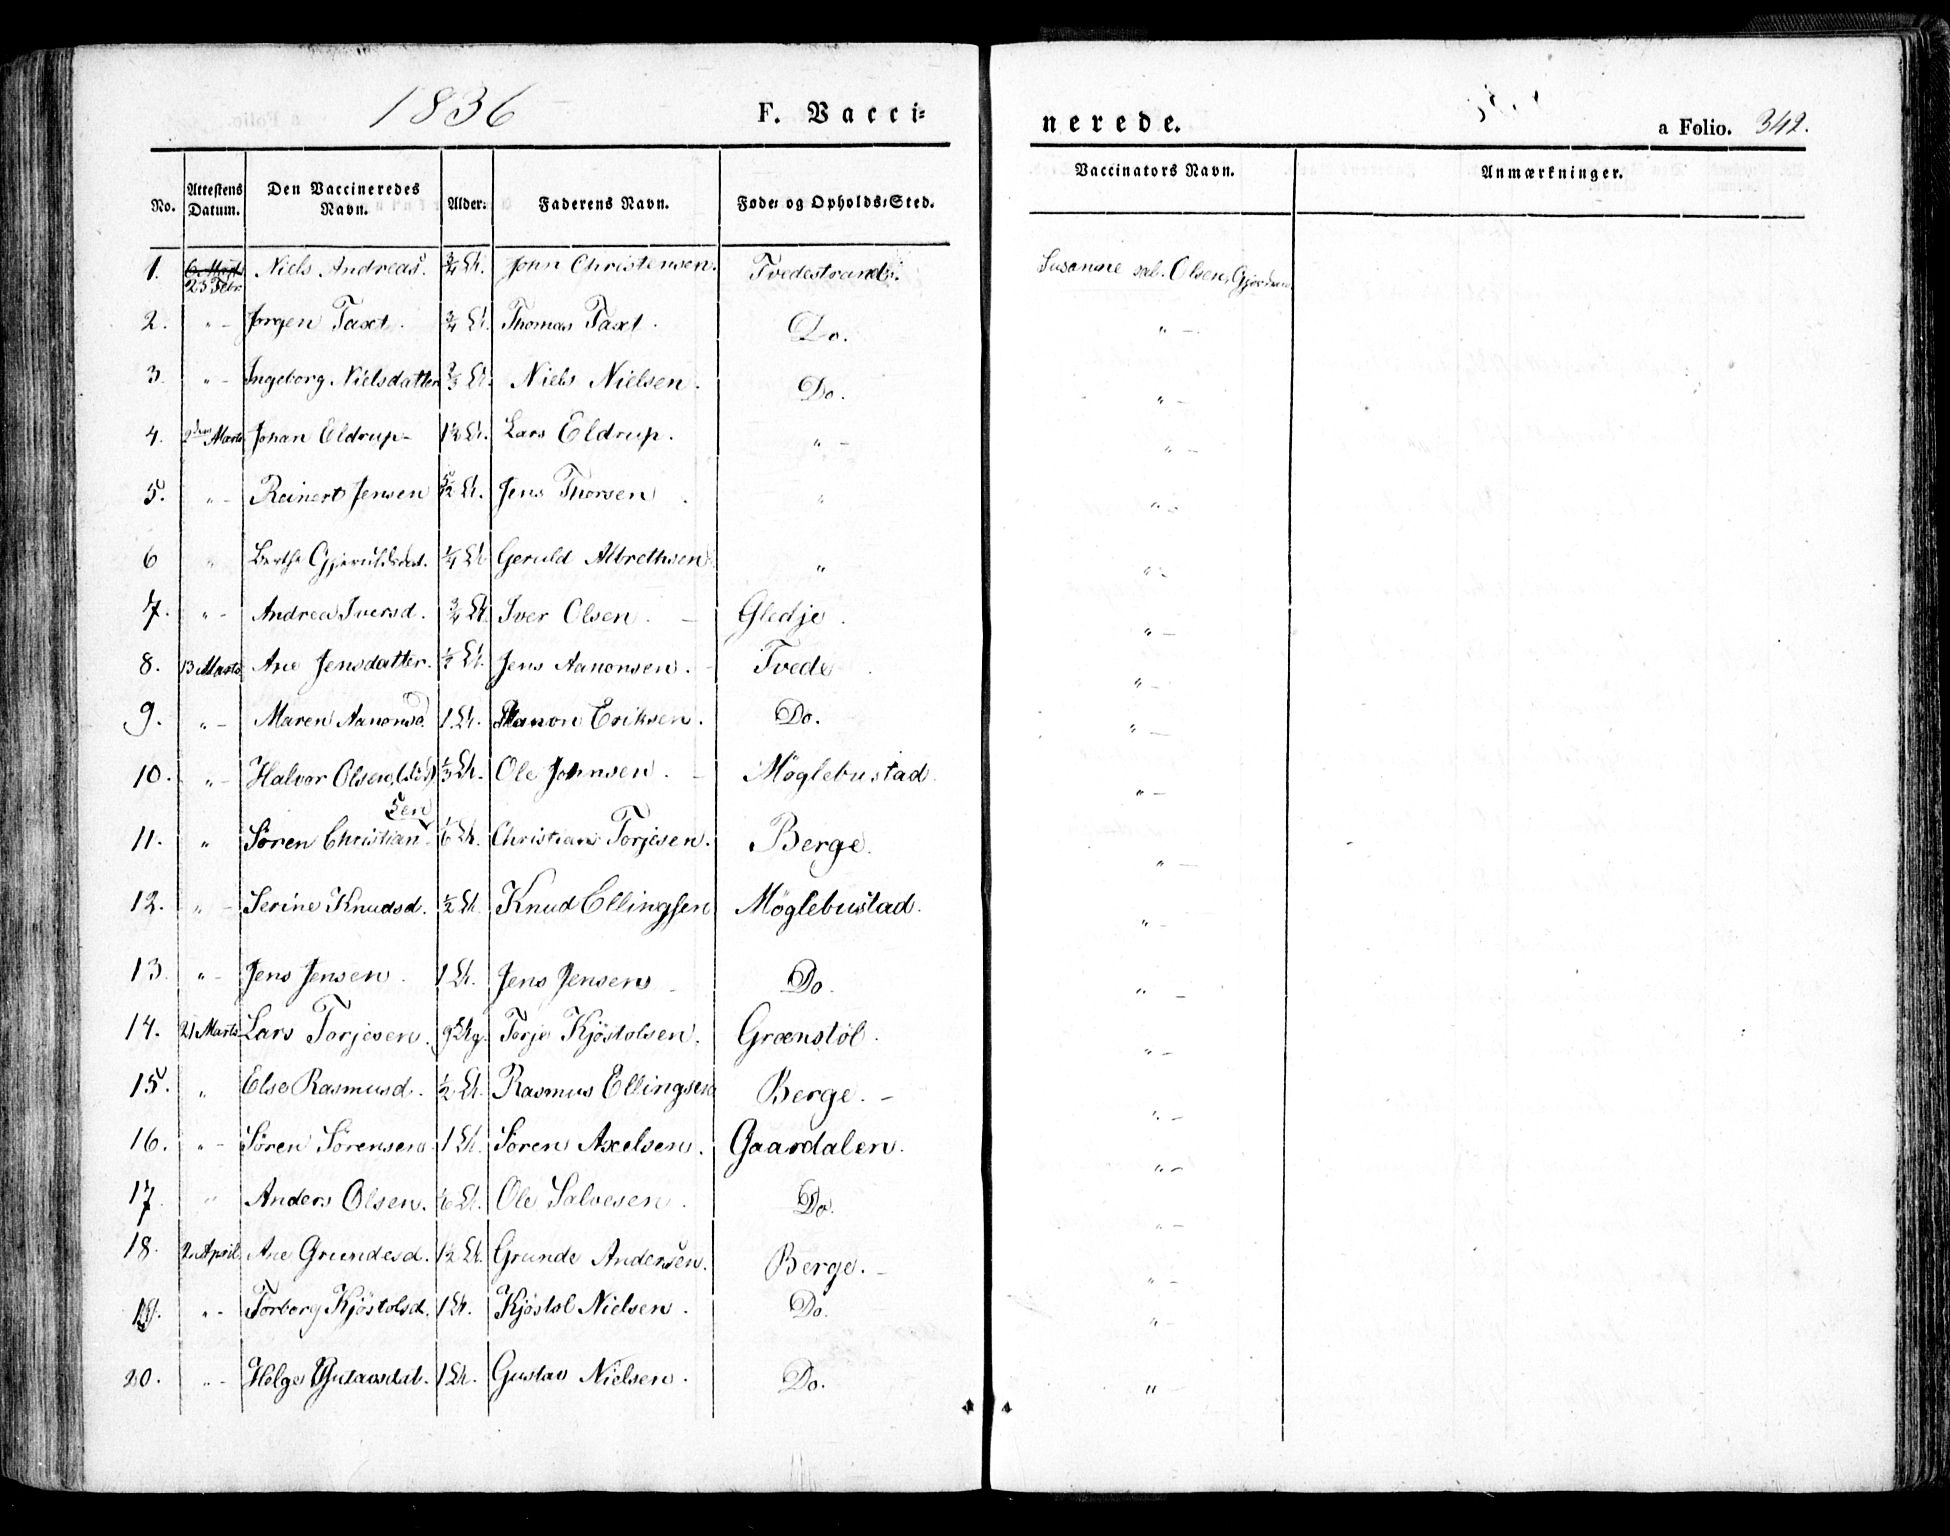 1836 F. Vacci= nerede. a Folio. 342.
No. Attestens Datum. Den Vaccineredes Navn. Alder: Faderens Navn. Føde- og Opholds-Sted. Vaccinators Navn. Anmærkninger.
1. 23 Febr. Niels Andreas. 3/4 John Christensen. Tvedestrand. Susanne sal. Olsen,
2. " - Jørgen Taxt. 3/4 Thomas Taxt. Do. " -
3. " - Ingeborg Nielsdatter 2/3 Niels Nielsen. Do. " -
4. 2den Marts Johan Eldrup - 1 1/2 Lars Eldrup. " - " -
5. " - Reinert Jensen Jens Thorsen. " " -
6 " Berthe 1/4 Geruld Albrethsen " " -
7. " - Andrea Iversd. 3/4 Iver Olsen. - Gledje. " -
8. 13 Marts Ane Jensdatter. 1/2 Jens Aanonsen. - Tvede. " -
9. " - Maren Aanonsd. 1 Aanon Eriksen. Do. " -
10. " - Halvor Olsen, 1/3 Ole Johnsen. - Møglebustad. " -
11. " Søren Christiansen 1/6 Christian Torjesen. Berge. " -
12. " - Serine Knudsd. 1/2 Knud Ellingsen Møglebustad. " -
13. " - Jens Jensen. 1 Jens Jensen - Do. " -
14. 21 Marts Lars Torjesen. 9 Torje Kjøstolsen. Grønstøl. " -
15. " Else Rasmusd. 1/2 Rasmus Ellingsen Berge. - " -
16. " - Søren Sørensen 1 Søren Axelsen. Gaardalen. " -
17. " Anders Olsen. 1/6 Ole Salvesen. Do. " -
18. 2 April. Ane Grundesd. 1 1/2 Grunde Andersen. Berge. - " -
19. " - Torborg Kjøstolsd. 1 Kjøstol Nielsen. Do. " -
20. " - Helge 1 Gustav Nielsen. Do. " -